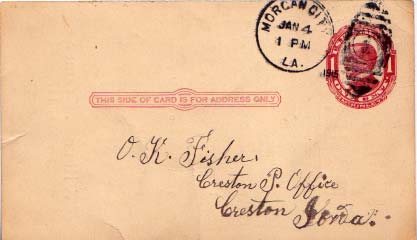 MORGAN CITY
JAN 4
1 PM
LA.
1915
THIS SIDE OF CARD IS FOR ADDRESS ONLY
O. K. Fisher,
Creston P. Office
Creston Iowa.